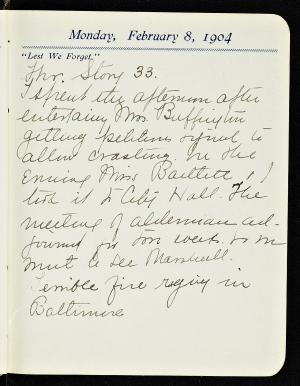 Monday, February 8, 1904
"Lest We Forget."
Thr. Story 33.
I spent the afternoon after
entertaing Mrs. Buffington
getting petition signed to
allow coasting. In the
evening Miss Bartlett & I
took it to City Hall. The
meeting of alderman ad-
journed for two weeks so we
must to see Marshall.
Terrible fire raging in
Baltimore